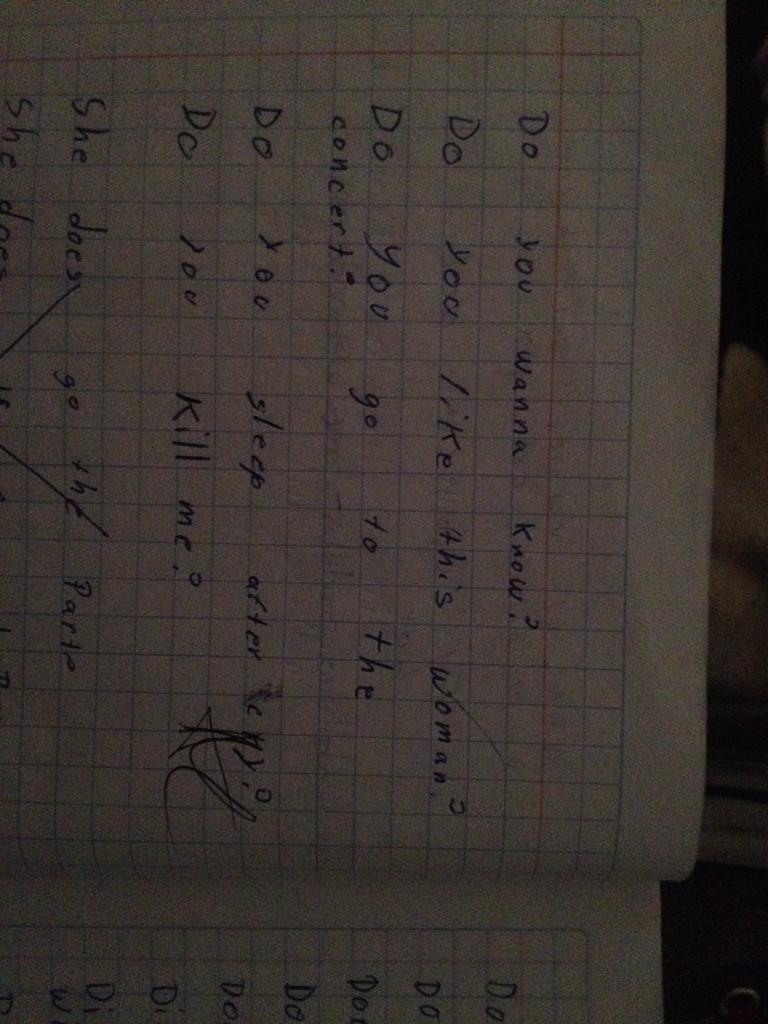 Do you wanna know?
Do you like this woman?
Do you go to the
concert?
Do you sleep after cry?
Do you kill me?
She does go the Parte
She does
Do
Do
Do
Do
Di
Di